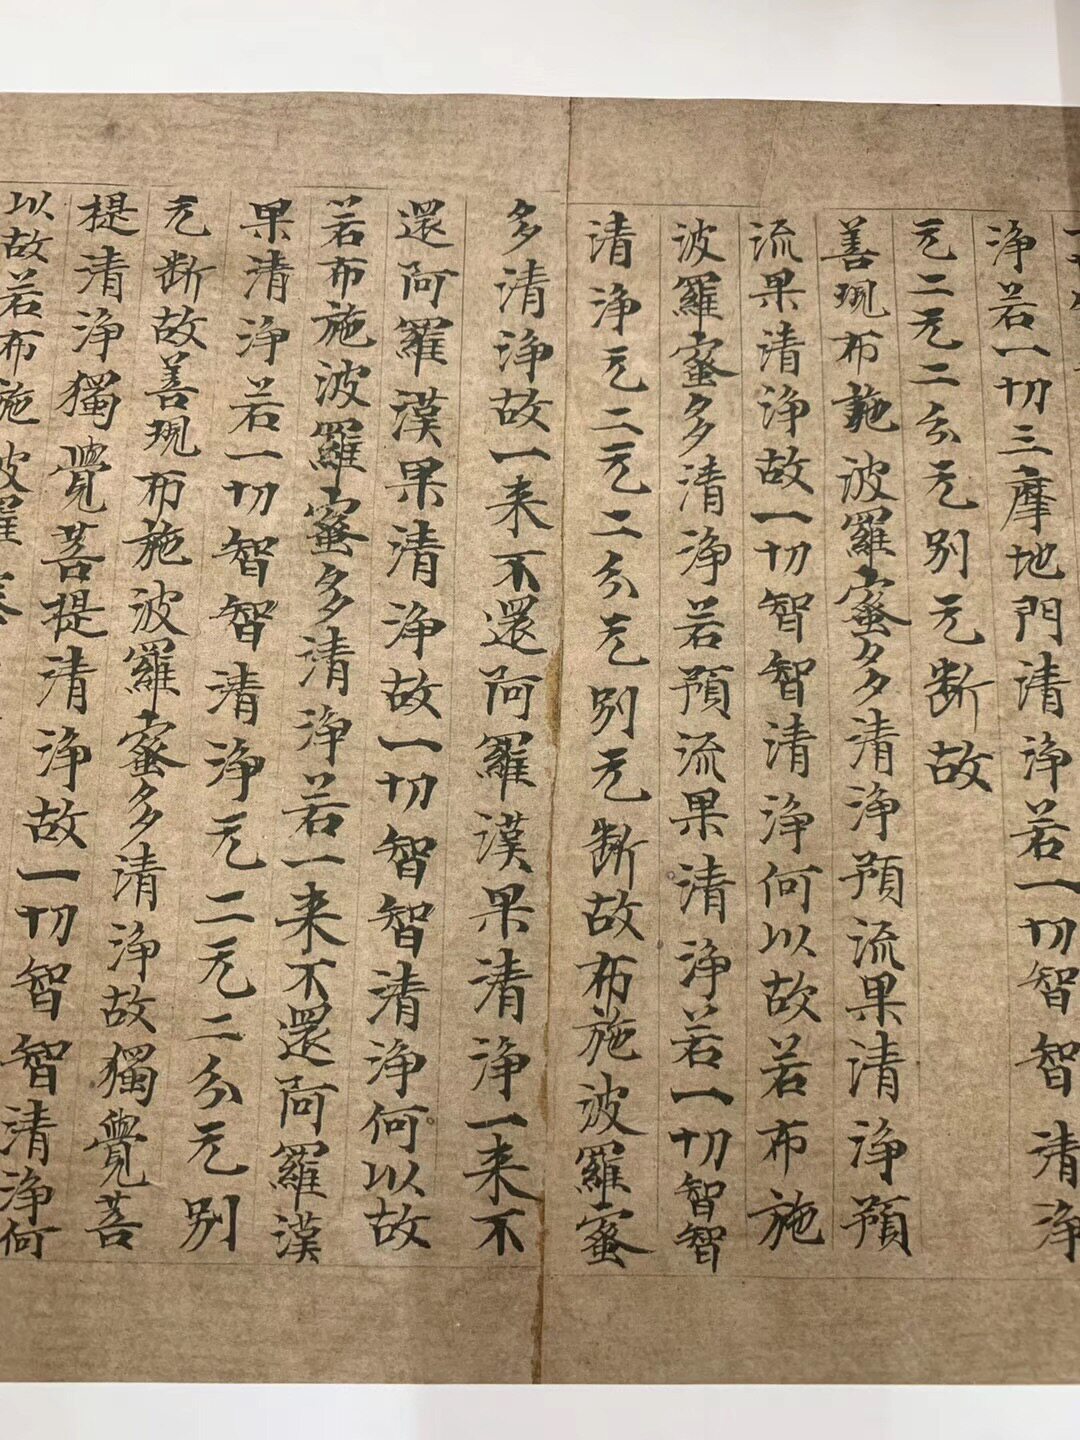 浄若一切三摩地門清浄若一切智智清浄
无二无二分无別无断故
善現布施波羅蜜多清浄預流果清浄預
流果清浄故一切智智清浄何以故若布施
波羅蜜多清浄若預流果清浄若一切智智
清浄无二无二分无別无断故布施波羅蜜
多清浄故一来不還阿羅漢果清浄一来不
還阿羅漢果清浄故一切智智清浄何以故
若布施波羅蜜多清浄若一来不還阿羅漢
果清浄若一切智智清浄无二无二分无別
无断故善現布施波羅蜜多清浄故獨覺菩
提清浄獨覺菩提清浄故一切智智清浄何
以故若布施波羅